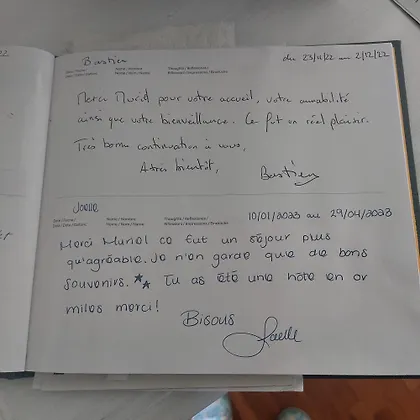 Bastien
du 23/11/22 au 2/12/22
Merci Muriel pour votre accueil, votre amabilité
ainsi que votre bienveillance. Ce fut un réel plaisir.
Très bonne continuation à vous,
A très bientôt,
Bastien
Joelle
10/01/2023 au 29/04/2023
Merci Muriel ce fut un séjour plus
qu'agréable. Je n'en garde que de bons
souvenirs. Tu as été une hôte en or
milles merci!
Bisous
Joelle